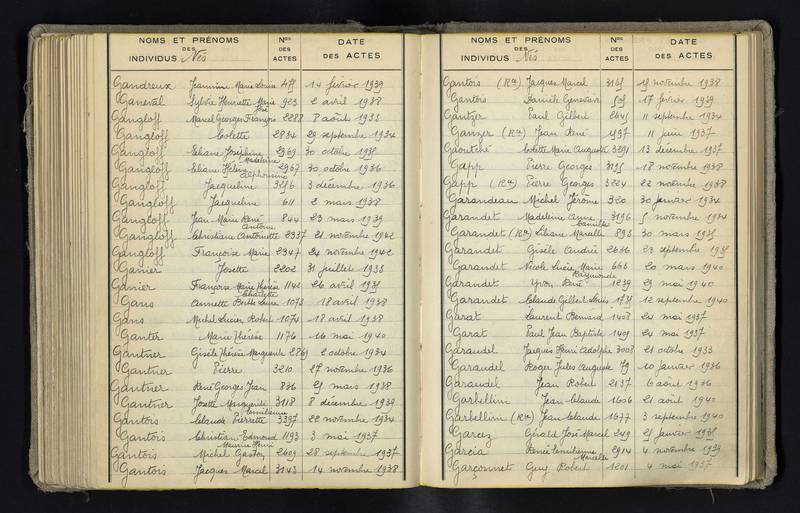 NOMS ET PRÉNOMS DES INDIVIDUS Nés
Nos DES ACTES
DATE DES ACTES
Gandreux Jeannine Marie Louise 477 14 février 1939
Ganeval Sylvie Henriette Marie 923 2 avril 1938
Gangloff Marcel Georges François 2288 8 août 1933
Gangloff Colette 2834 29 septembre 1934
Gangloff Eliane Joséphine 2969 30 octobre
Madeleine
Gangloff Eliane Hélène 2967 30 octobre 1936
Alphonsine
Gangloff Jacqueline 3256 3 décembre 1936
Gangloff Jacqueline 611 2 mars 1938
Gangloff Jean Marie René 844 23 mars 1939
Antoine
Gangloff Christiane Antoinette 2337 21 novembre 1942
Gangloff Françoise Marie 2347 24 novembre 1942
Ganier Josette 2202 31 juillet 1933
Ganier Françoise Marie Thérèse 1142 26 avril
Charlotte
Gans Annette Berthe Laure 1073 18 avril 1938
Gans Michel Lucien Robert 1074 18 avril 1938
Ganter Marie Thérèse 1176 16 mai 1940
Gantner Gisèle Thérèse Marguerite 2869 2 octobre 1934
Gantner Pierre 3210 27 novembre 1936
Gantner René Georges Jean 836 25 mars 1938
Gantner Josette Marguerite 3118 8 décembre 1939
Emilienne
Gantois Claude Pierrette 3397 22 novembre 1934
Gantois Christian Edmond 1193 3 mai 1937
Maurice Henri
Gantois Michel Gaston 2609 28 septembre 1937
Gantois Jacques Marcel 3143 14 novembre 1938
NOMS ET PRÉNOMS DES INDIVIDUS Nés
Nos DES ACTES
DATE DES ACTES
Gantois (Ron) Jacques Marcel 3165 18 novembre 1938
Gantois Danièle Geneviève 505 17 février 1939
Gantzer Paul Gilbert 2645 11 septembre 1934
Ganzer Jean René 1537 11 juin 1937
Gaoutché Colette Marie Auguste 3291 13 décembre 1937
Gapp Pierre Georges 3195 18 novembre 1938
Gapp Pierre Georges 3224 22 novembre 1938
Garandeau Michel Jérôme 320 30 janvier 1934
Garandet Madeleine Anne 3196 5 novembre 1934
Camille
Garandet Liliane Marcelle 893 30 mars
Garandet Gisèle Andrée 2636 23 septembre
Garandet Nicole Lucie Marie 666 20 mars 1940
Raymonde
Garandet Yvon René 1239 23 mai 1940
Garandet Claude Gilbert Louis 1731 12 septembre 1940
Garat Laurent Bernard 1408 24 mai 1937
Garat Paul Jean Baptiste 1409 24 mai 1937
Garaudel Jacques Henri Adolphe 3008 21 octobre 1933
Garaudel Roger Jules Auguste 79 10 janvier 1936
Garaudel Jean Robert 2137 6 août 1936
Garbellini Jean Claude 1606 21 août 1940
Garbellini Jean Claude 1677 3 septembre 1940
Garcez Gérald José Marcel 249 25 janvier
Garcia Renée Emilienne 2914 4 novembre 1939
Marcelle
Garçonnet Guy Robert 1201 4 mai 1937